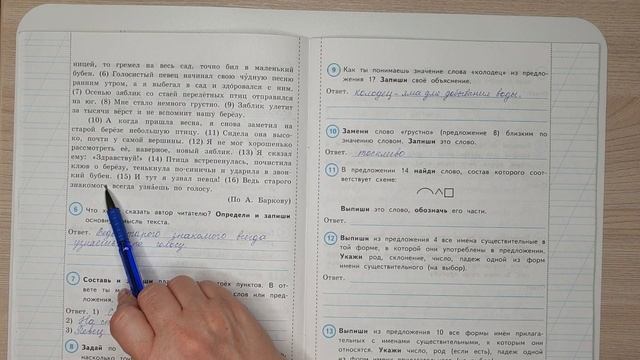 ницей, то гремел на весь сад, точно бил в маленький
бубен. (6) Голосистый певец начинал свою чу́дную песню
ранним утром, а я выбегал в сад и здоровался с ним.
(7) Осенью зяблик со стаей перелётных птиц отправился
на юг. (8) Мне стало немного грустно. (9) Зяблик улетит
за тысячи вёрст и не вспомнит нашу берёзу.
(10) А когда пришла весна, я снова заметил на
старой берёзе небольшую птицу. (11) Сидела она высо-
ко, почти у самой вершины. (12) Я не мог хорошенько
рассмотреть её, наверное, новый зяблик. (13) Я сказал
ему: «Здравствуй!» (14) Птица встрепенулась, почистила
клюв о берёзу, тенькнула по-синичьи и ударила в звон-
кий бубен. (15) И тут я узнал певца! (16) Ведь старого
знакомого всегда узнаёшь по голосу.
(По А. Баркову)
6 Что хотел сказать автор читателю? Определи и запиши
основную мысль текста.
Ответ. Ведь старого знакомого всегда
узнаёшь по голосу.
7 Составь и запиши план трёх пунктов. В от-
вете ты мо слов или пред-
ложения.
Ответ. 1)
2) На
3) Певец
8 Задай
насколько точно
9 Как ты понимаешь значение слова «колодец» из предло-
жения 1? Запиши своё объяснение.
Ответ. колодец – яма для добывания воды.
10 Замени слово «грустно» (предложение 8) близким по
значению словом. Запиши это слово.
Ответ. тоскливо
11 В предложении 14 найди слово, состав которого соот-
ветствует схеме:
Выпиши это слово, обозначь его части.
Ответ.
12 Выпиши из предложения 4 все имена существительные в
той форме, в которой они употреблены в предложении.
Укажи род, склонение, число, падеж одной из форм
имени существительного (на выбор).
Ответ.
13 Выпиши из предложения 10 все формы имён прилага-
тельных с именами существительными, к которым они
относятся. Укажи число, род (если есть), падеж одной